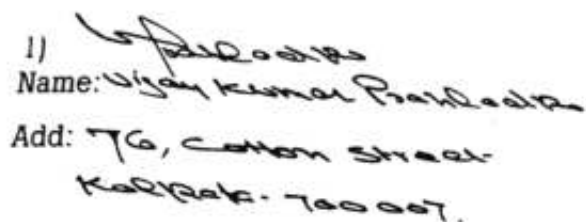 1)
Name: Vijay Kumar Prahladka
Add: 76, Cotton Street
Kolkata - 700 007.